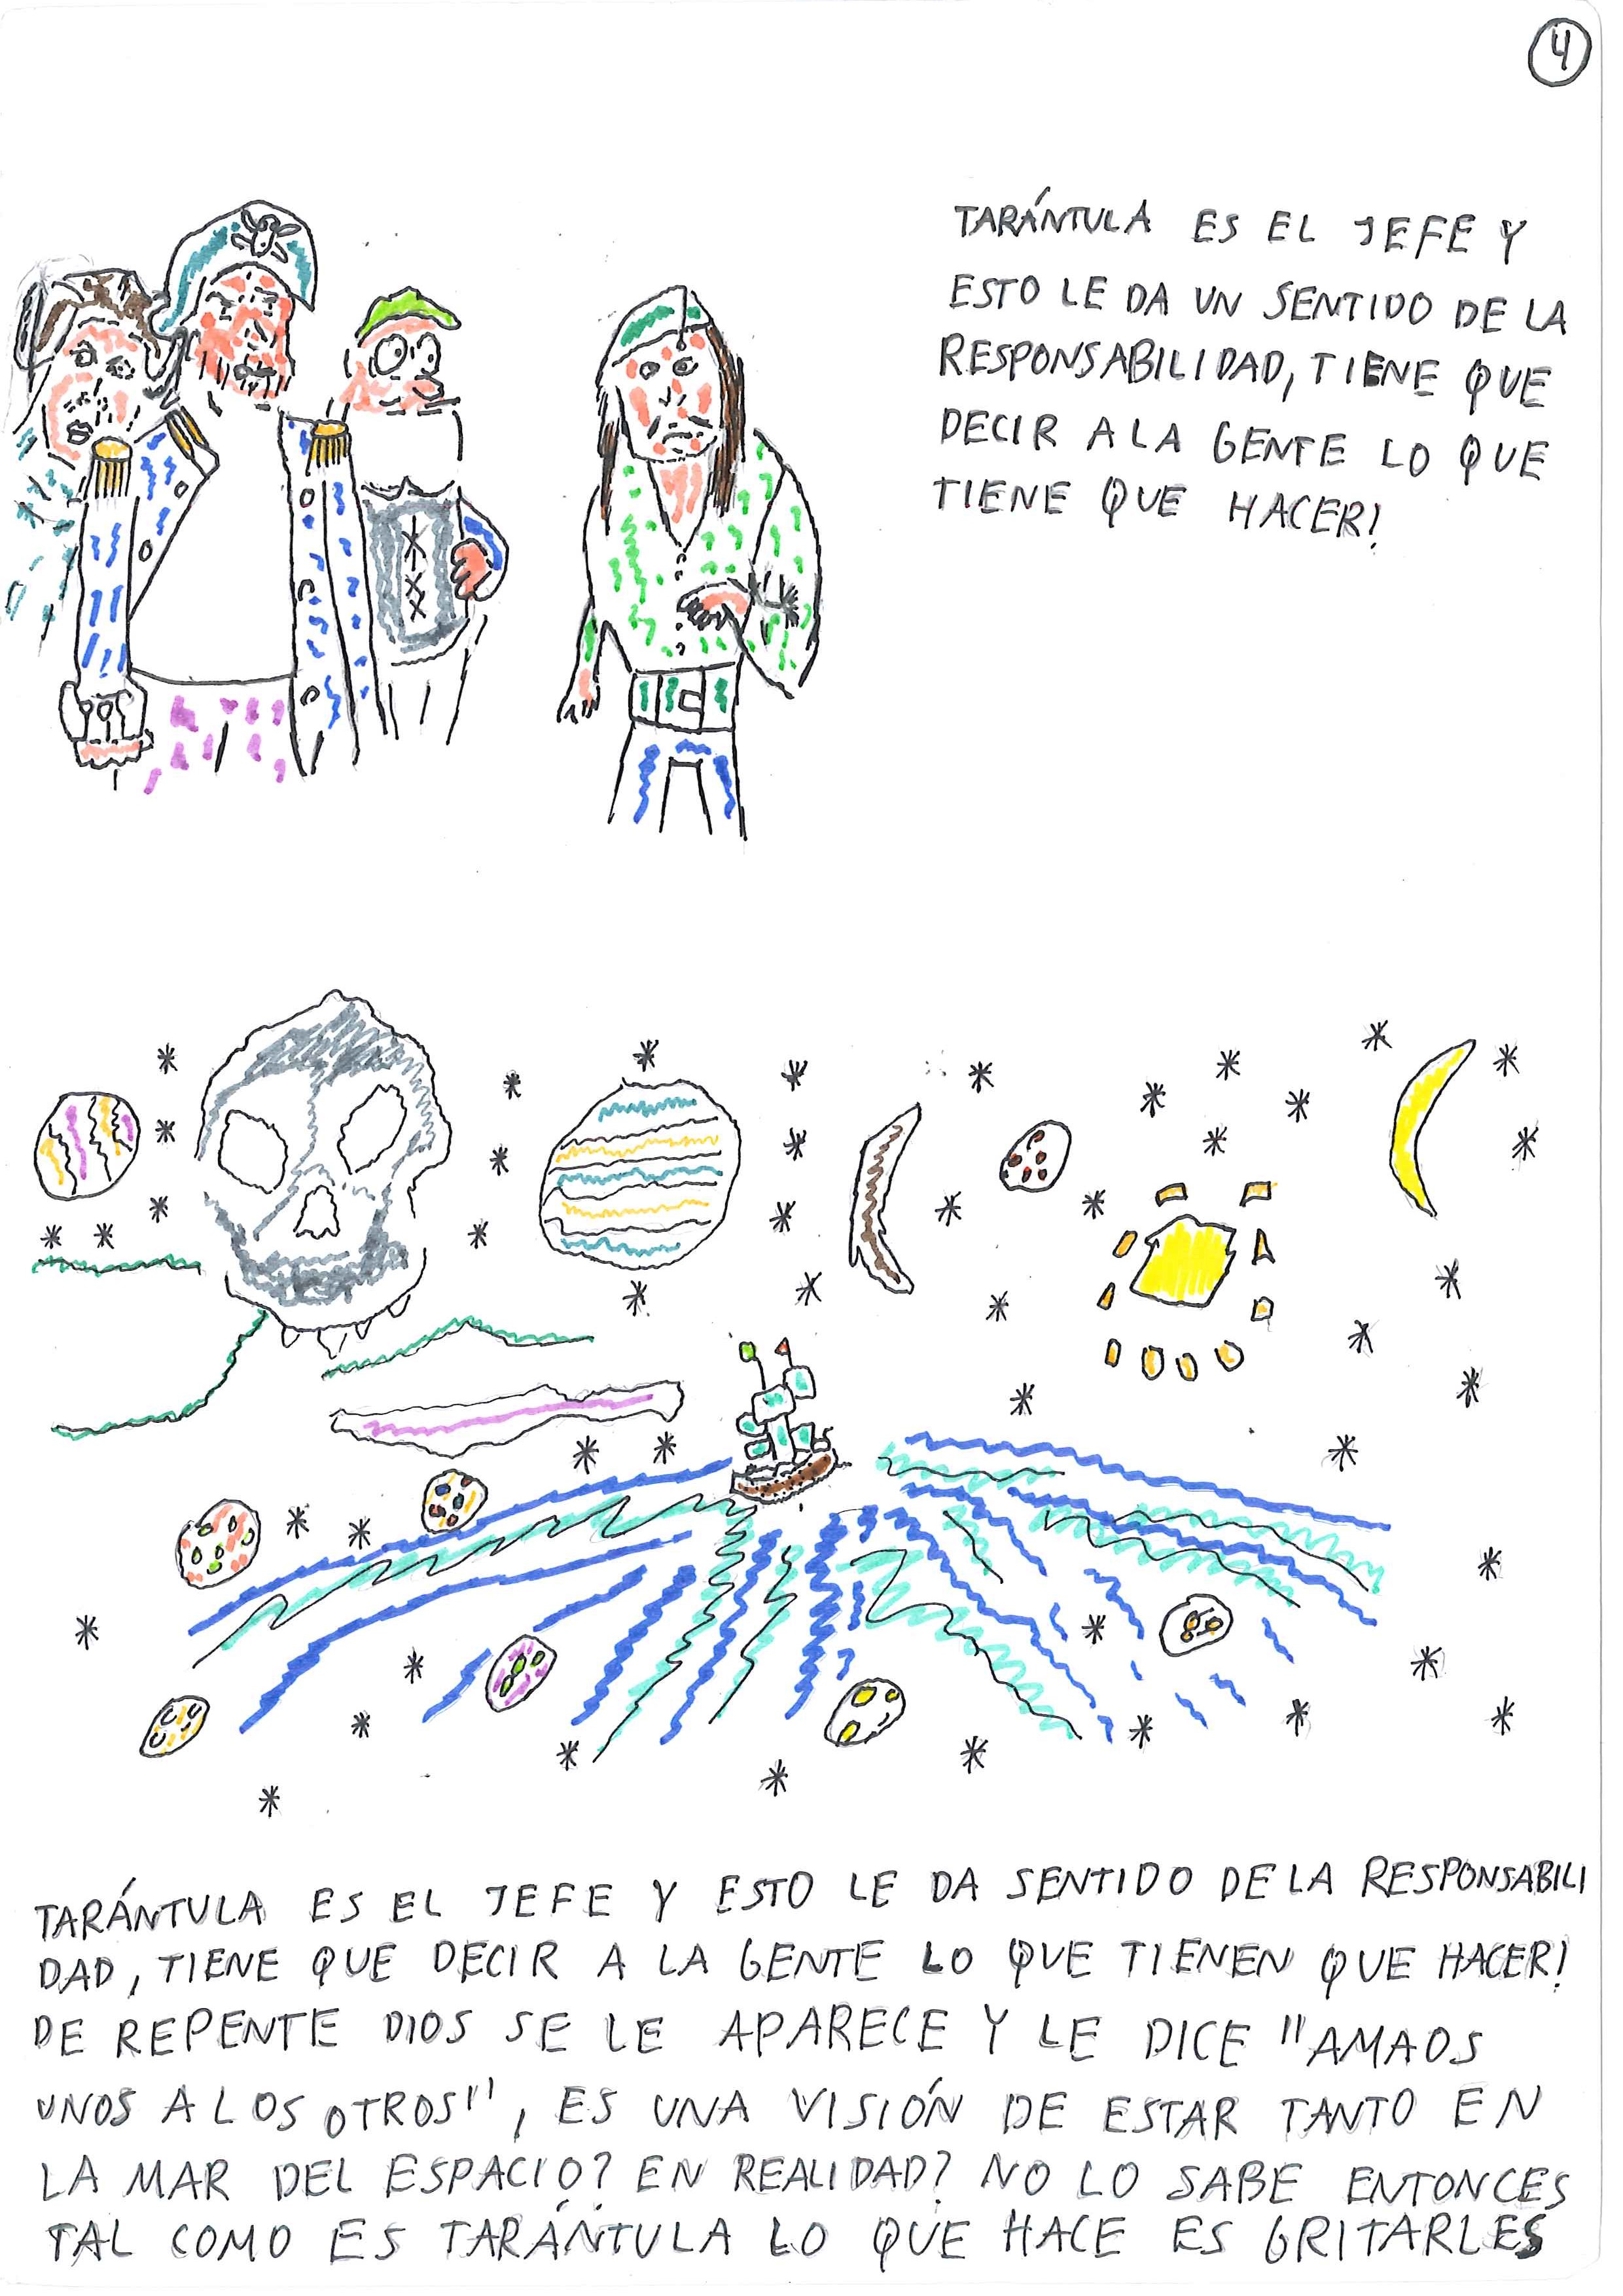 4
TARÁNTULA ES EL JEFE Y
ESTO LE DA UN SENTIDO DE LA
RESPONSABILIDAD, TIENE QUE
DECIR A LA GENTE LO QUE
TIENE QUE HACER!
TARÁNTULA ES EL JEFE Y ESTO LE DA SENTIDO DE LA RESPONSABILI
DAD, TIENE QUE DECIR A LA GENTE LO QUE TIENEN QUE HACER!
DE REPENTE DIOS SE LE APARECE Y LE DICE "AMAOS
UNOS A LOS OTROS", ES UNA VISIÓN DE ESTAR TANTO EN
LA MAR DEL ESPACIO? EN REALIDAD? NO LO SABE ENTONCES
TAL COMO ES TARÁNTULA LO QUE HACE ES GRITARLES